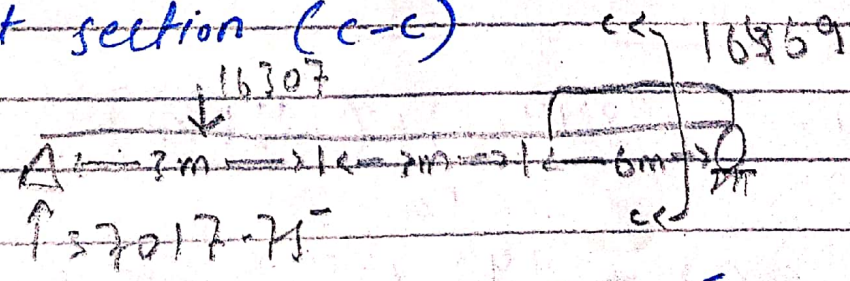 t section (c-c)
cc 16869
16307
3m 3m 6m
cc
37017.75